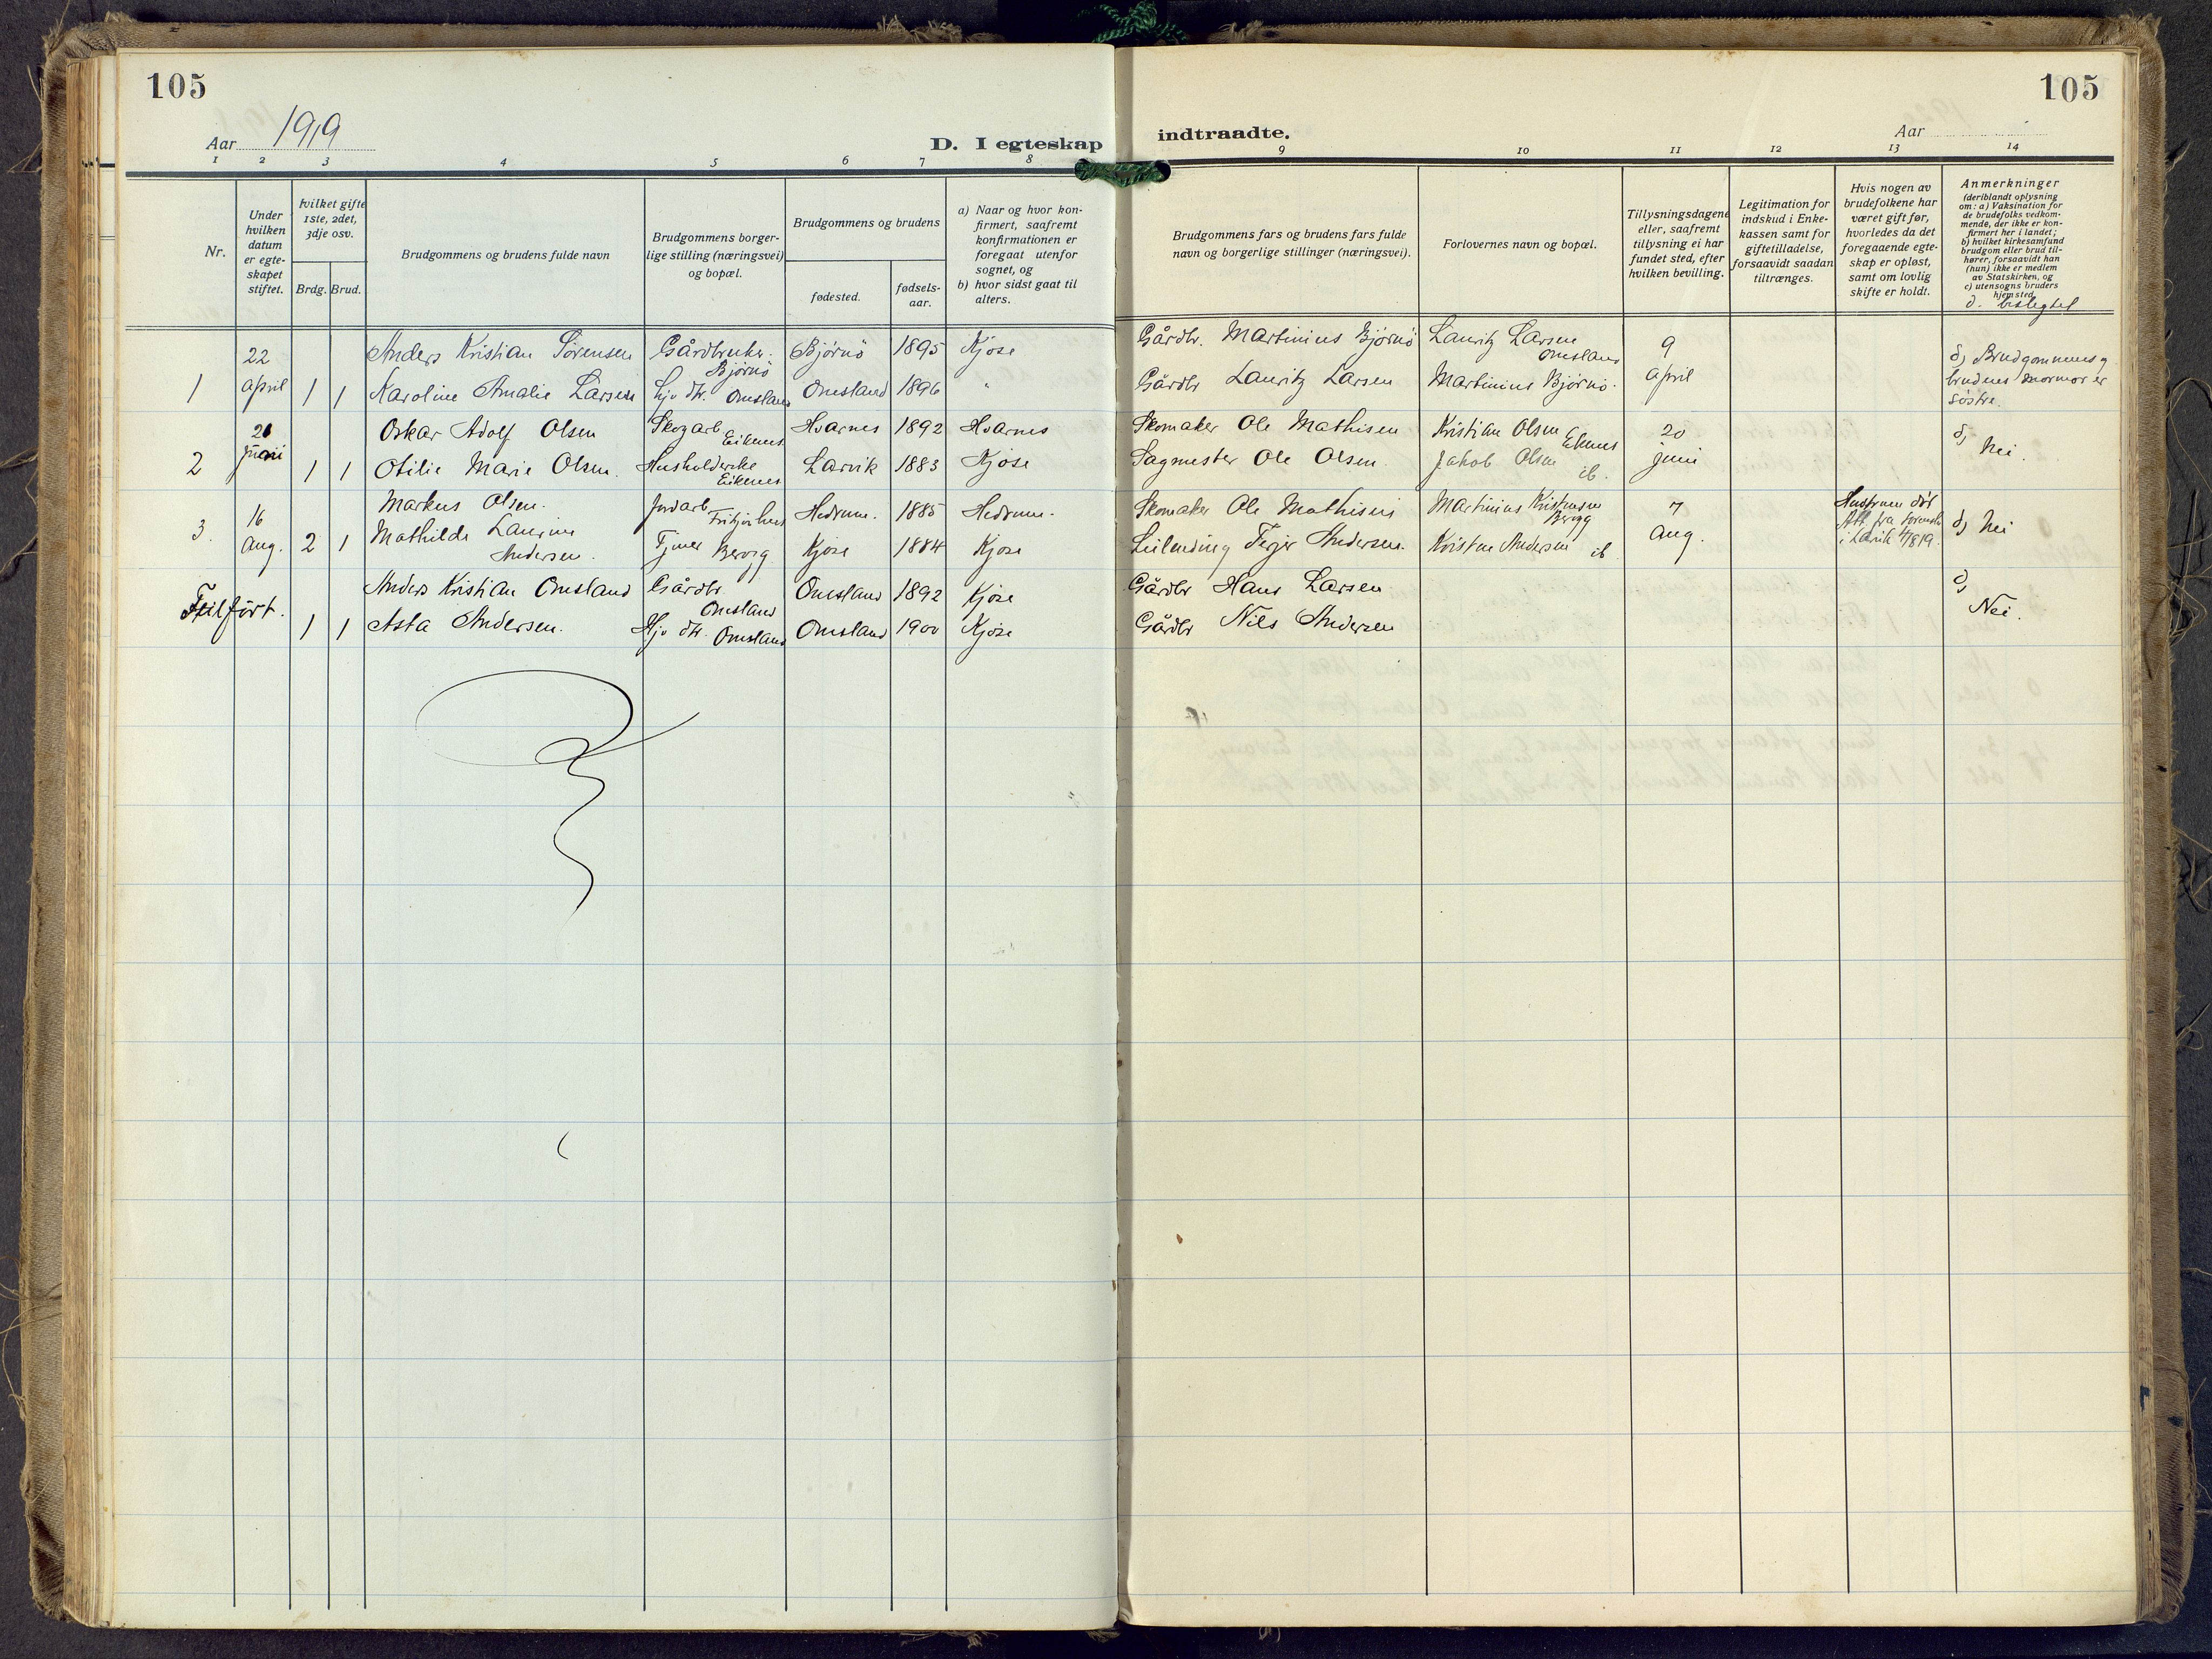 105
Aar 1919
D. I egteskap
1 2 3 4 5 6 7 8
Nr.
Under hvilken datum er egteskapet stiftet.
hvilket gifte 1ste, 2det, 3dje osv.
Brdg. Brud.
Brudgommens og brudens fulde navn
Brudgommens borgerlige stilling (næringsvei) og bopæl.
Brudgommens og brudens
fødested.
fødselsaar.
a) Naar og hvor konfirmert, saafremt konfirmationen er foregaat utenfor sognet, og
b) hvor sidst gaat til alters.
22 Anders Kristian Sørensen Gårdbruker. Bjørnø Bjørnø 1895 Kjose
1 April 1 1 Karoline Amalie Larsen Hjv dtr. Omsland Omsland 1896 "
21 Oskar Adolf Olsen Skogarb. Eikenes Hvarnes 1892 Hvarnes
2 juni 1 1 Otilie Marie Olsen. Husholderske Eikenes Larvik 1883 Kjose
16 Markus Olsen. Jordarb. Fritzøehus Hedrum. 1885 Hedrum.
3. Aug. 2 1 Mathilde Laurine Andersen. Tjener Bergg Kjose 1884 Kjose
Anders Kristian Omsland Gårdbr. Omsland Omsland 1892 Kjose
Feilført. 1 1 Asta Andersen. Hjv dtr. Omsland Omsland 1900 Kjose
105
indtraadte.
Aar
9 10 11 12 13 14
Brudgommens fars og brudens fars fulde navn og borgerlige stillinger (næringsvei).
Forlovernes navn og bopæl.
Tillysningsdagene eller, saafremt tillysning ei har fundet sted, efter hvilken bevilling.
Legitimation for indskud i Enkekassen samt for giftetilladelse, forsaavidt saadan tiltrænges.
Hvis nogen av brudefolkene har været gift før, hvorledes da det foregaaende egteskap er opløst, samt om lovlig skifte er holdt.
Anmerkninger
(deriblandt oplysning om: a) Vaksination for de brudefolks vedkommende, der ikke er konfirmert her i landet;
b) hvilket kirkesamfund brudgom eller brud tilhører, forsaavidt han (hun) ikke er medlem av Statskirken, og
c) utensogns bruders hjemsted.
d. beslegtet
Gårdbr. Martinius Bjørnø Lauritz Larsen Omsland 9
Gårdbr Lauritz Larsen Martinius Bjørnø. April
d) Brudgommens og brudens mormor er søstre.
Skomaker Ole Mathisen Kristian Olsen Eikenes 20 d)
Sagmester Ole Olsen. Jakob Olsen ib. juni Nei.
Skomaker Ole Mathisen Martinius Kristensen Bergg 7
Leilending Ferjer Andersen. Kristen Andersen ib Aug.
Hustruen død
Att. fra
i Larvik
d) Nei
Gårdbr Hans Larsen d)
Gårdbr Nils Andersen Nei.